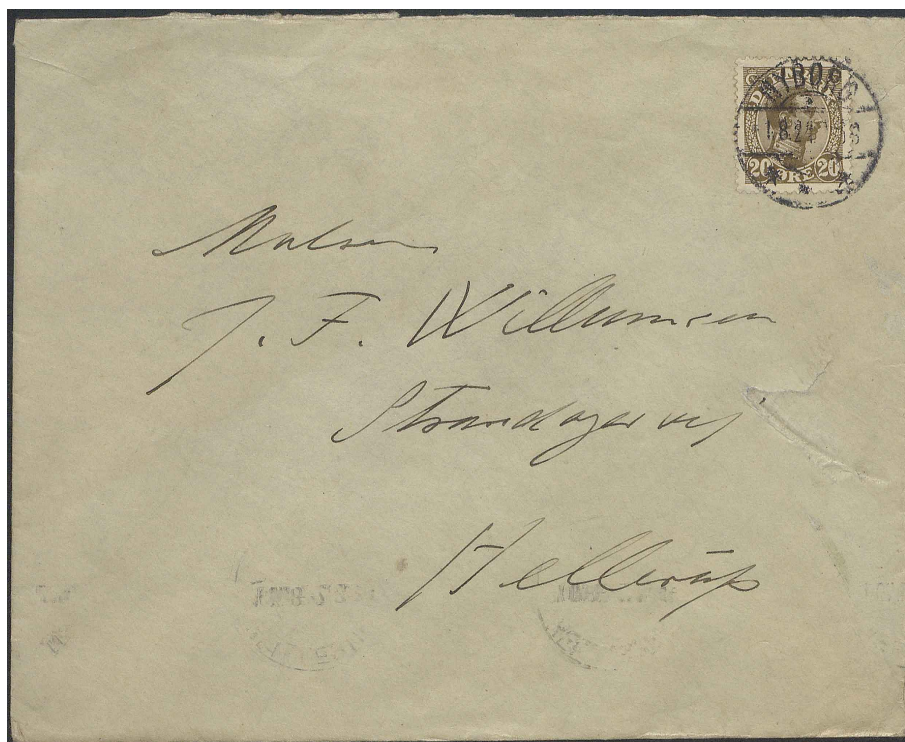 DANMARK
NYBORG
1.8.24
20 ØRE 20
Maleren
J. F. Willumsen
Strandagervej
Hellerup